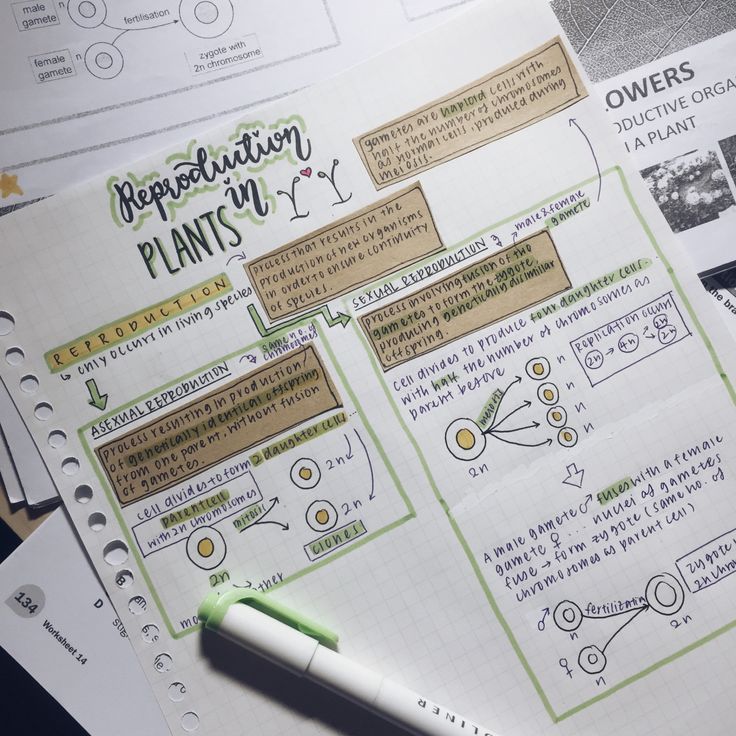 male
gamete
n
fertilisation
female
gamete
n
zygote with
2n chromosome
OWERS
ODUCTIVE ORGA
A PLANT
Reproduction
in
PLANTS
gametes are haploid cells with
half the number of chromosomes
as normal cells, produced during
meiosis.
process that results in the
production of new organisms
in order to ensure continuity
of species.
REPRODUCTION
↳ only occurs in living species
ASEXUAL REPRODUCTION
same no. of
chromosomes
process resulting in production
of genetically identical offspring
from one parent, without fusion
of gametes.
cell divides to form 2 daughter cells...
parent cell
with 2n chromosomes
mitosis
2n
2n
2n
clones
SEXUAL REPRODUCTION
male & female
gamete
process involving fusion of two
gametes to form the zygote,
producing genetically dissimilar
offspring.
cell divides to produce four daughter cells...
with half the number of chromosomes as
parent before
replication occurs
2n → 4n
2n
2n
meiosis
2n
n
n
n
n
A male gamete ♂ fuses with a female
gamete ♀ ... nuclei of gametes
fuse → form zygote (same no. of
chromosomes as parent cell)
♂
n
fertilization
♀
n
2n
zygote
2n chro
134
Worksheet 14
D
the bra
LINER